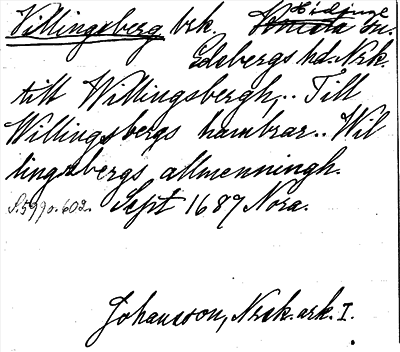 Villingsberg brk Hidinge sn.
Edsbergs hd. Nrk.
till Willingsbergh,.. Till
Willingsbergs hambrar.. Wil
lingsbergs allmenningh.
S. 599 o. 602. Sept 1687 Nora.
Johansson, Nrsk. ark. I.